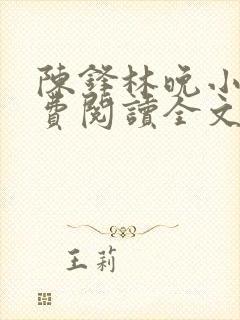 陳鋒林晚小
費閱讀全文
王莉